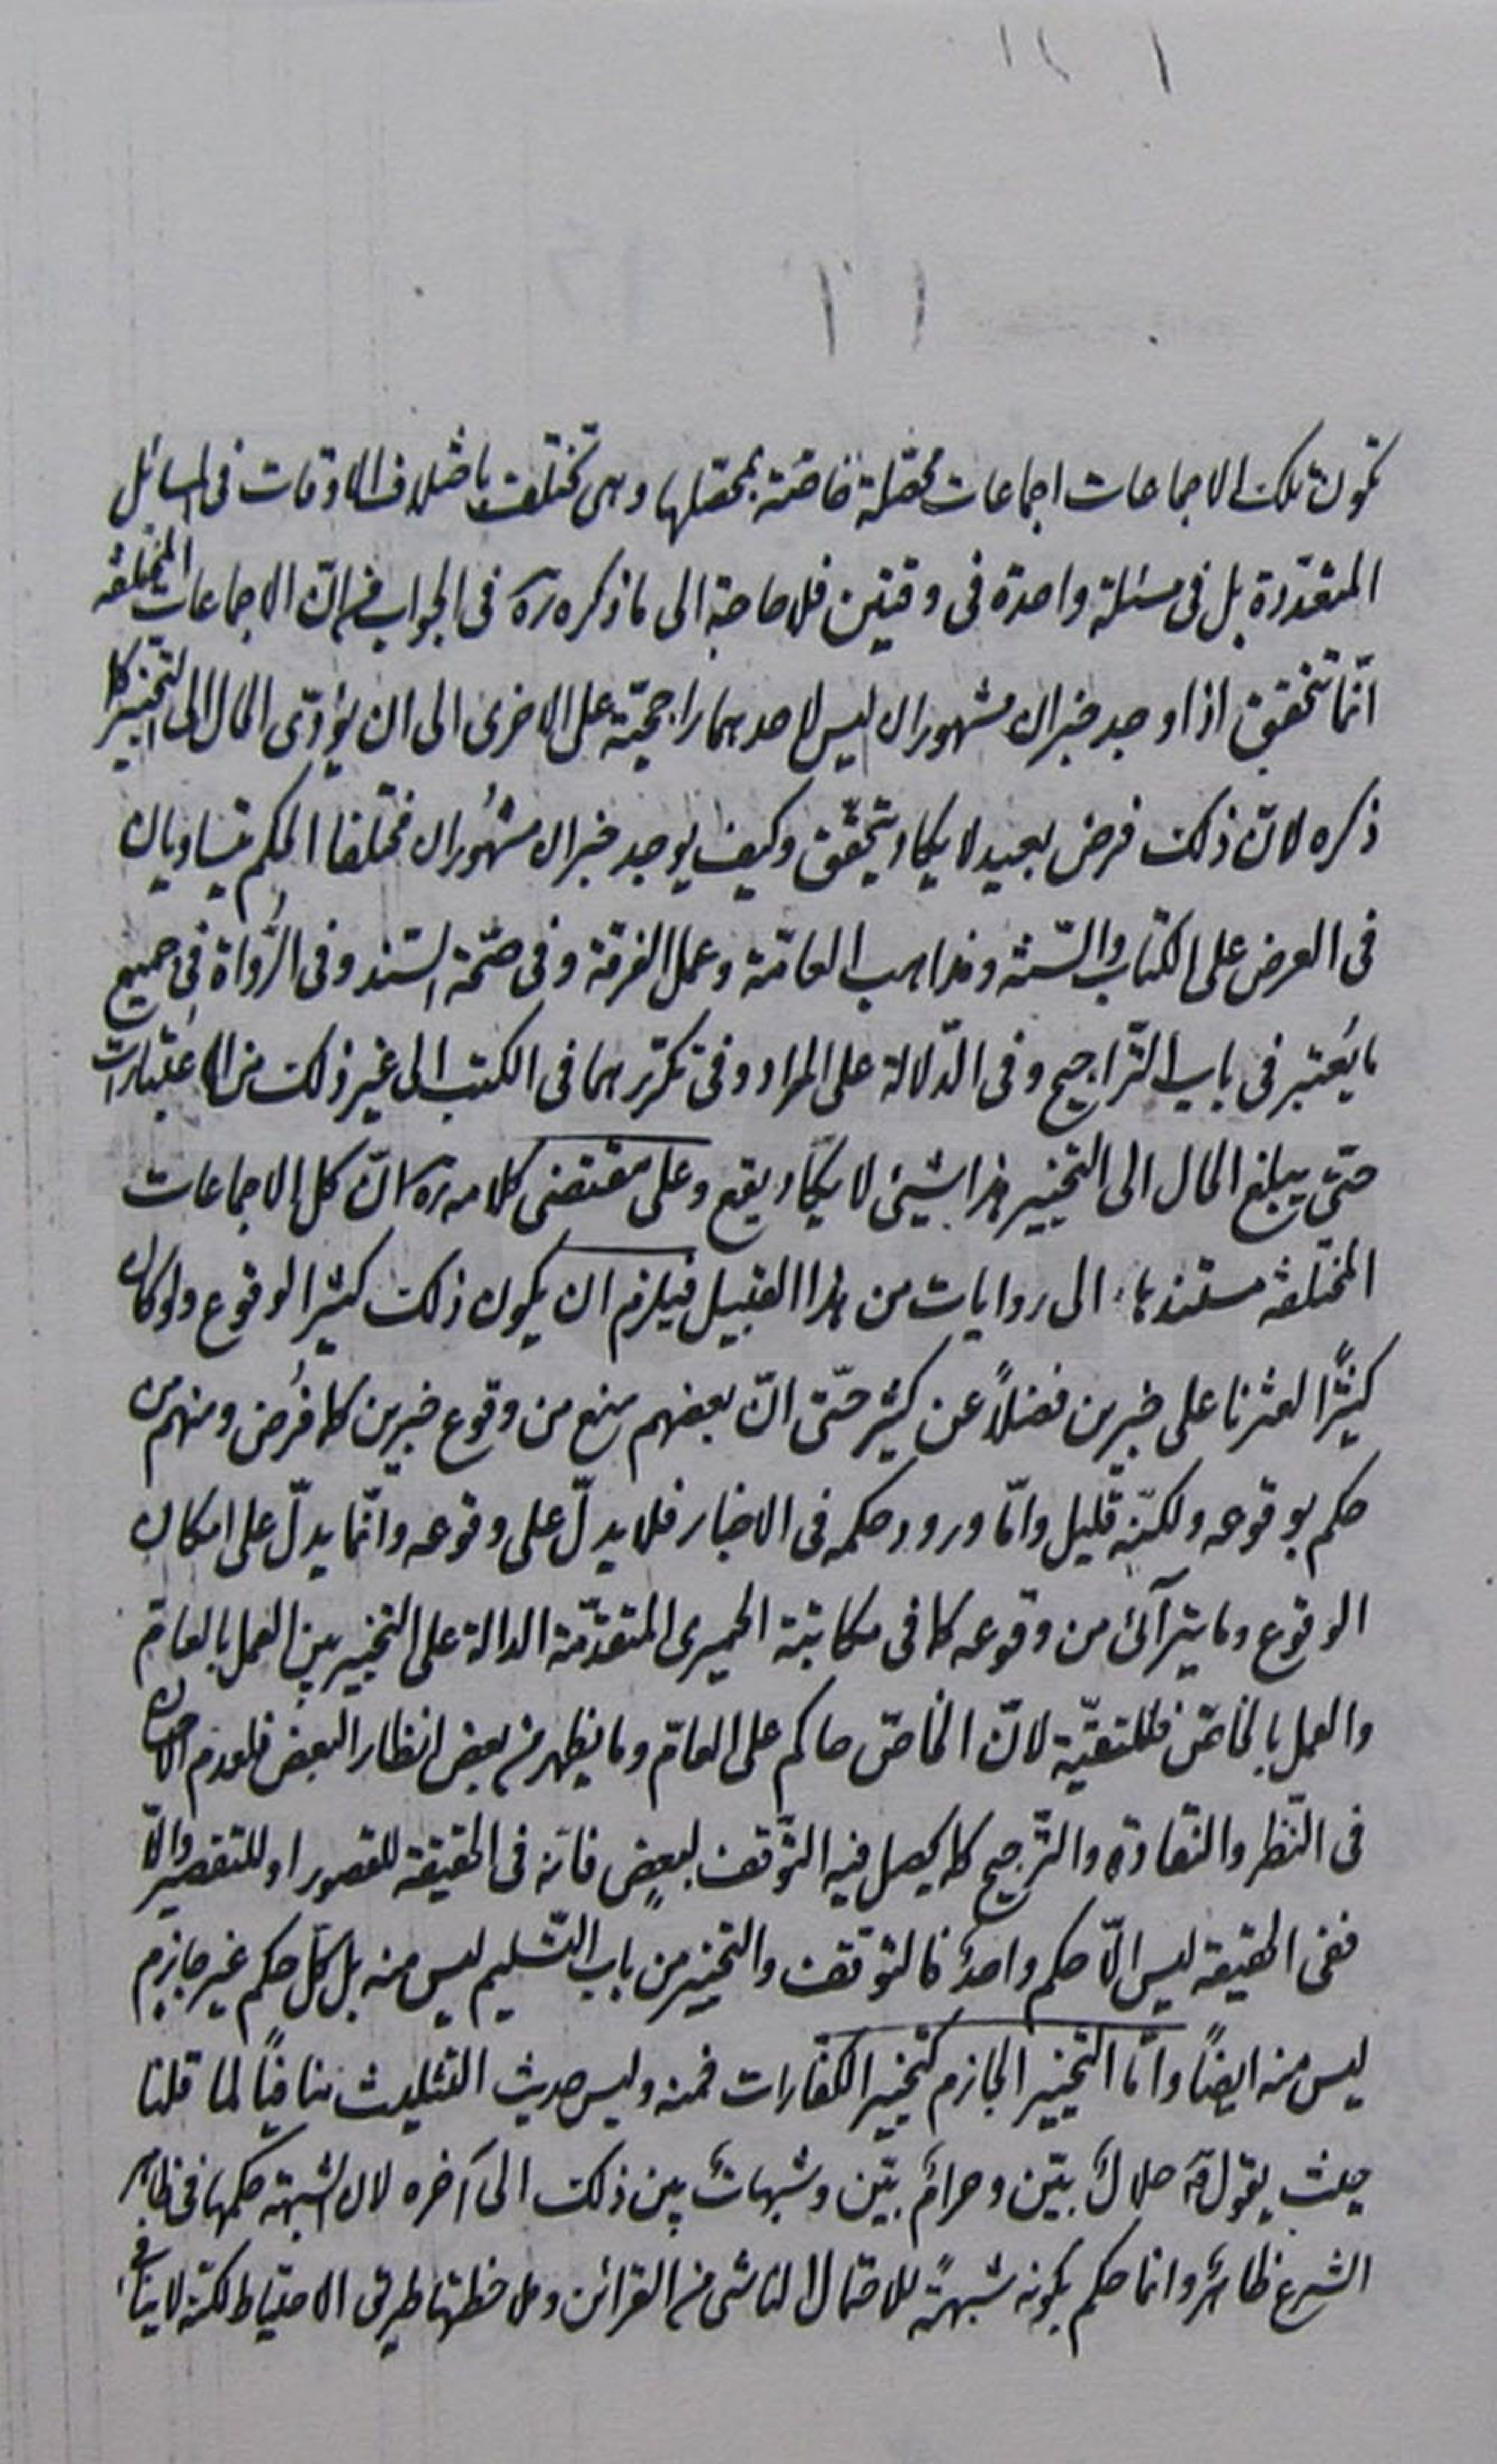 تكون تلك الاجماعات اجماعات محصّلة خاصّة بمحصّلها وهى تختلف باختلاف الاوقات فى المسائل
المتعدّدة بل فى مسئلة واحدة فى وقتين فلا حاجة الى ما ذكره ره فى الجواب من انّ الاجماعات المختلفة
انّما تتحقق اذا وجد خبران مشهوران ليس لاحدهما راجحيّة على الاخرى الى ان يؤدّى الحال الى التخيير كما
ذكره لانّ ذلك فرض بعيد لا يكاد يتحقّق وكيف يوجد خبران مشهوران مختلفا الحكم يتساويان
فى العرض على الكتاب والسّنّة ومذاهب العامّة وعمل الفرقة وفى صحّة السّند وفى الرُّواة فى جميع
ما يُعتبر فى باب التّراجيح وفى الدّلالة على المراد وفى تكرّرهما فى الكتب الى غير ذلك من الاعتبارات
حتّى يبلغ الحال الى التخيير هذا شيئ لا يكاد يقع وعلى مقتضى كلامه ره انّ كل الاجماعات
المختلفة مستندها الى روايات من هذا القبيل فيلزم ان يكون ذلك كثير الوقوع ولو كان
كثيرًا لعثرنا على خبرين فضلاً عن كثير حتّى انّ بعضهم منع من وقوع خبرين كما فُرض ومنهم من
حكم بوقوعه ولكنّه قليل وامّا ورود حكمه فى الاخبار فلا يدلّ على وقوعه وانّما يدلّ على امكان
الوقوع وما يترآئ من وقوعه كما فى مكاتبة الحميرى المتقدّمة الدالة على التخيير بين العمل بالعامّ
والعمل بالخاصّ فللتقيّة لانّ الخاصّ حاكم على العامّ وما يظهر من بعض انظار البعض فلعدم
فى النّظر والنّقادة والتّرجيح كما يحصل فيه التّوقف لبعضٍ فانّه فى الحقيقة للقصور او للتقصير والّا
ففى الحقيقة ليس الّا حكم واحدٌ فالتوقف والتخيير من باب التّسليم ليس منه بل كلّ حكم غير جازم
ليس منه ايضاً وامّا التخيير الجازم كتخيير الكفّارات فمنه وليس حديث التثليث منافياً لما قلنا
حيث يقول حلالٌ بيّن وحرامٌ بيّن وشبهاتٌ بين ذلك الى آخره لان الشبهة حكمها فى ظاهر
الشرع ظاهرٌ وانما حكم بكونه شبهةً للاحتمال الناشى من القرائن وملاحظتها طريق الاحتياط لكنّه لا ينافى